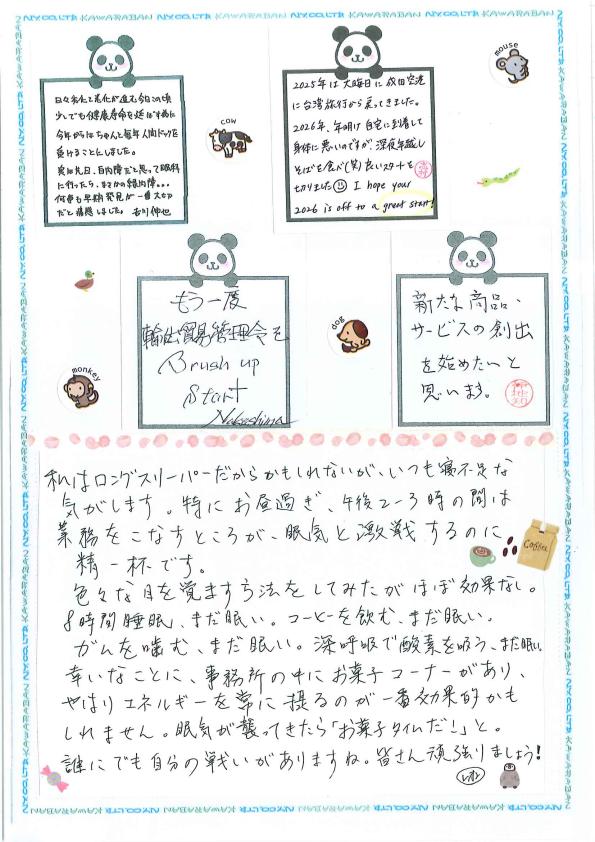 日々刻々と老化が進む今日この頃
少しでも健康寿命を延ばす為に
今年からはちゃんと毎年人間ドックを
受けることにしました。
実は先日、白内障だと思って眼科
に行ったら、まさかの緑内障...
何事も早期発見が一番大切
だと痛感しました。
cow
2025年は大晦日に成田空港
に台湾旅行から戻ってきました。
2026年、年明け自宅に到着して
身体に悪いのですが、深夜年越し
そばを食べ(笑)良いスタートを
切りました I hope your
2026 is off to a great start!
mouse
もう一度
輸出貿易管理令を
Brush up
Start
Nakashima
dog
monkey
新たな商品、
サービスの創出
を始めたいと
思います。
私はロングスリーパーだからかもしれないが、いつも寝不足な
気がします。特にお昼過ぎ、午後2-3時の間は
業務をこなすところが、眠気と激戦するのに
精一杯です。
色々な目を覚ます方法をしてみたがほぼ効果なし。
8時間睡眠、まだ眠い。コーヒーを飲む、まだ眠い。
ガムを噛む、まだ眠い。深呼吸で酸素を吸う、まだ眠い
幸いなことに、事務所の中にお菓子コーナーがあり、
やはりエネルギーを常に摂るのが一番効果的かも
しれません。眠気が襲ってきたら「お菓子タイムだ！」と。
誰にでも自分の戦いがありますね。皆さん頑張りましょう！
Coffee
N.Y.CO.,LTD KAWARABAN